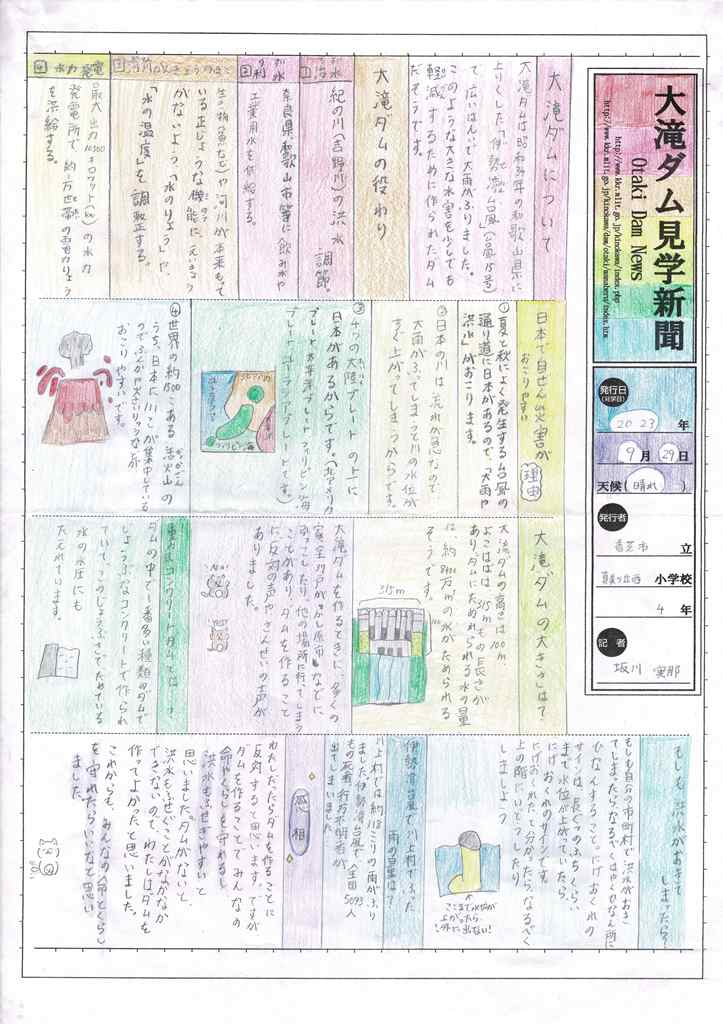 大滝ダム見学新聞
Otaki Dam News
http://www.kkr.mlit.go.jp/kinokawa/index.php
http://www.kkr.mlit.go.jp/kinokawa/dam/otaki/manaberu/index.htm
発行日
(見学日)
2023年
9月29日
天候(晴れ)
発行者
香芝市立
小学校
4年
記者
坂川
大滝ダムについて
大滝ダムは昭和34年の和歌山県に
上りくした「伊勢湾台風」(台風15号)
て広いはんいで大雨がふりました。
このような大きな水害を少しでも
軽減するために作られたダム
だそうです。
大滝ダムの役わり
①治水
紀の川(吉野川)の洪水
調節。
②利水
奈良県、和歌山市等に飲み水や
工業用水を供給する。
生き物(魚など)や河川が本来もって
いる正じょうな機能に(えいきょう
がないよう、「水のりょう」や
「水の温度」を調整する。
④水力発電
最大出力10500キロワット(kw)の水力
発電所で約1万世帯の電力りょう
を供給する。
日本で自ぜん災害が
おこりやすい
理由
①夏と秋によく発生する台風の
通り道に日本があるので、「大雨や
洪水」がおこります。
②日本の川は流れが急なので
大雨がふってしまうと川の水位が
すぐ上がってしまうからです。
③4つの大陸プレートの上に
日本があるからです。(北アメリカ
プレート、太平洋プレート、フィリピン海
プレート、ユーラシアプレートです。)
④世界の約1500こある活火山の
うち、日本に111こが集中している
のでふん火や大きいリスクなどが
おこりやすいです。
大滝ダムの大きさは?
大滝ダムの高さは100m、
よこはばは315mもの長さが
ありダムにためられる水の量
は、約8400万m³の水がためられる
そうです。
315m
大滝ダムを作るときに、多くの
ことがあり、ダムを作ること
に反対の声やさんせいの声が
ありました。
重力式コンクリートダムとは?
ダムの中で一番多い種類のダムで
じょうぶなコンクリートで作られ
ていて、このじょうぶさでためている
水の水圧にも
たえれています。
もしも洪水がおきて
しまったら?
もしも自分の市町村で洪水がおき
てしまったらなるべくはやくひなん所に
ひなんすること。にげおくれの
サインは、長ぐつのふちくらい
まで水位が上がっていたら、
にげおくれのサインです。
にげおくれたと分かったらなるべく
上の階にいどうしたり
しましょう。
ここまで水位が
上がったら
外に出ない!
伊勢湾台風で川上村でふった
雨の量は?
川上村では約
ました。伊勢湾台風で全国5093人
もの死者・行方不明者が
出てしまいました。
感想
わたしだったらダムを作ることに
反対すると思います。ですが
ダムを作ることでみんなの
命やくらしを守れるし、
洪水もふせぎやすいと
思いました。ダムがないと、
洪水もふせぐことがなかなか
できないので、わたしはダムを
作ってよかったと思いました。
これからも、みんなの命とくらし
を守れたらいいなと思い
ました。